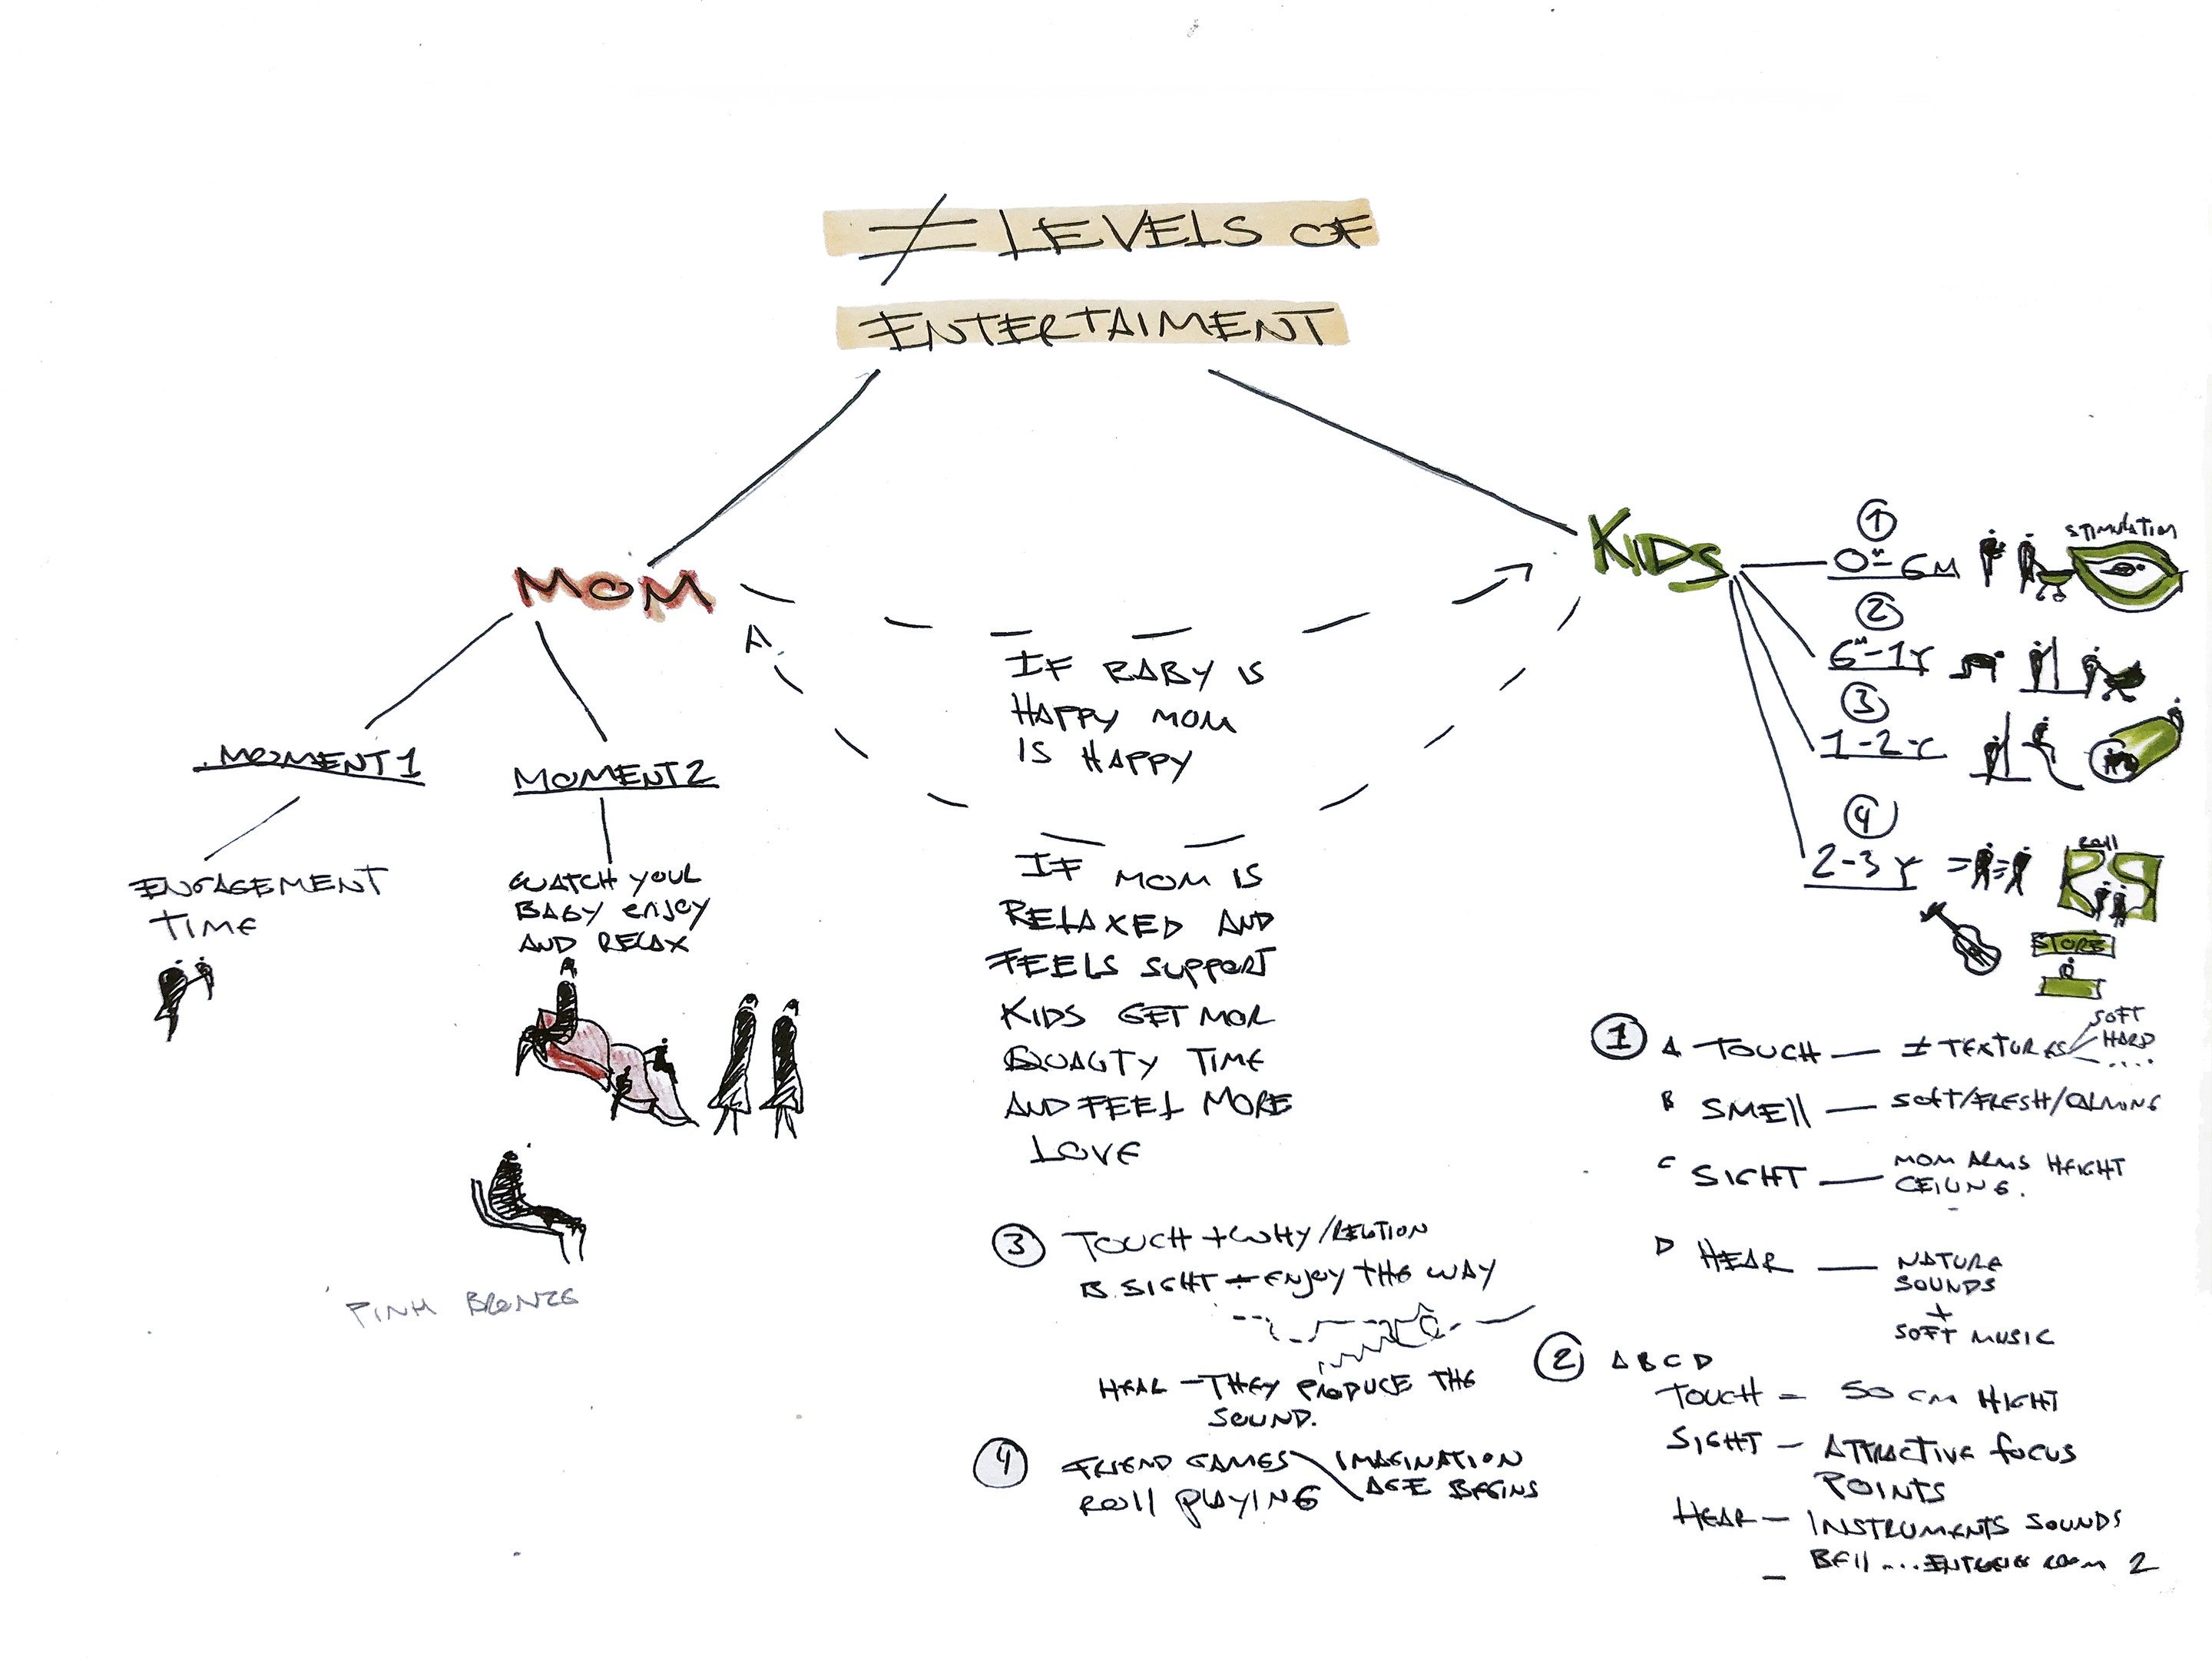 ≠ LEVELS OF
ENTERTAIMENT
MOM
KIDS
MOMENT 1
ENGAGEMENT
TIME
MOMENT 2
WATCH YOUR
BABY ENJOY
AND RELAX
PINK BRONZE
IF BABY IS
HAPPY MOM
IS HAPPY
IF MOM IS
RELAXED AND
FEELS SUPPORT
KIDS GET MOR
QUALITY TIME
AND FEEL MORE
LOVE
1
0M-6M
STIMULATION
2
6M-1Y
3
1-2Y
4
2-3Y
ROLL
STORE
1 A TOUCH — ≠ TEXTURES
SOFT
HARD
....
B SMELL — SOFT/FRESH/CALMING
C SIGHT — MOM ARMS HEIGHT
CEILING.
D HEAR — NATURE
SOUNDS
+
SOFT MUSIC
2 A B C D
TOUCH = 50 CM HIGHT
SIGHT — ATTRACTIVE FOCUS
POINTS
HEAR — INSTRUMENTS SOUNDS
BELL ... ROOM 2
3 TOUCH + WHY/
B. SIGHT — ENJOY THE WAY
HEAR — THEY PRODUCE THE
SOUND.
4 FRIEND GAMES IMAGINATION
ROLL PLAYING AGE BEGINS